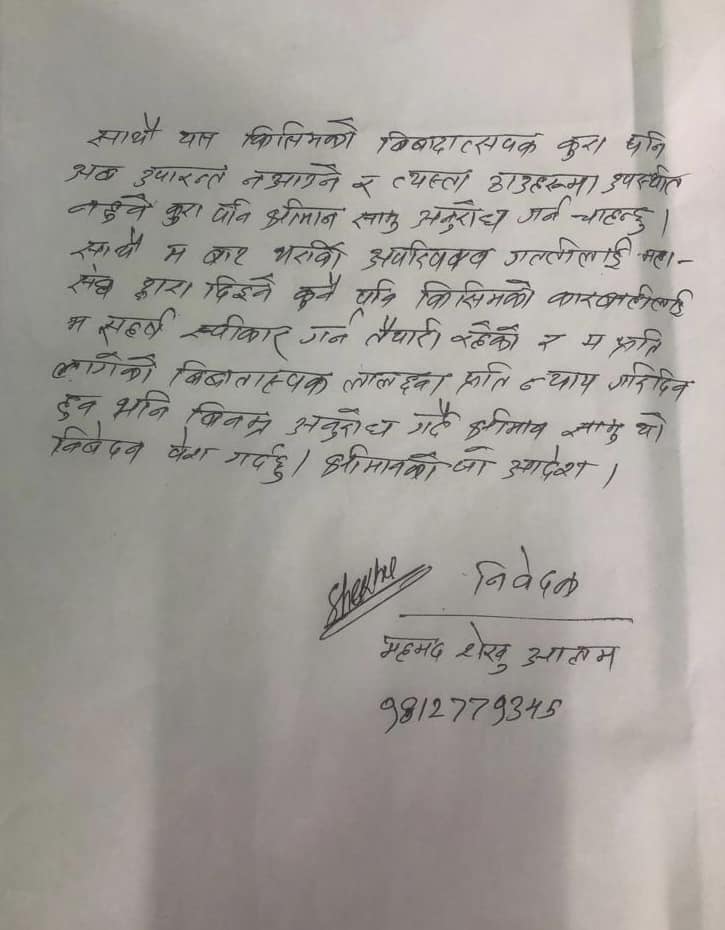 साथै यस किसिमको बिबादात्सपक कुरा पनि
अब उपारन्त नआउने र त्यस्ता ठाउहरूमा उपस्थीत
नहुने कुरा पनि श्रीमान सामु अनुरोध गर्न चाहन्छु।
साथै म बाट भएको अपरिपक्व गलतीलाई महा-
संघ द्वारा दिइने कुनै पनि किसिमको कारबाहीलाई
म सहर्ष स्वीकार गर्न तैयारी रहेको र म प्रति
लागेको बिबातास्पक लालछना प्रति न्याय गरिदिन
हुन भनि बिनम्र अनुरोध गर्दै श्रीमान सामु यो
निबेदन पेश गर्दछु। श्रीमानको जो आदेश।
निवेदक
महमद शेखु आलम
9812779345